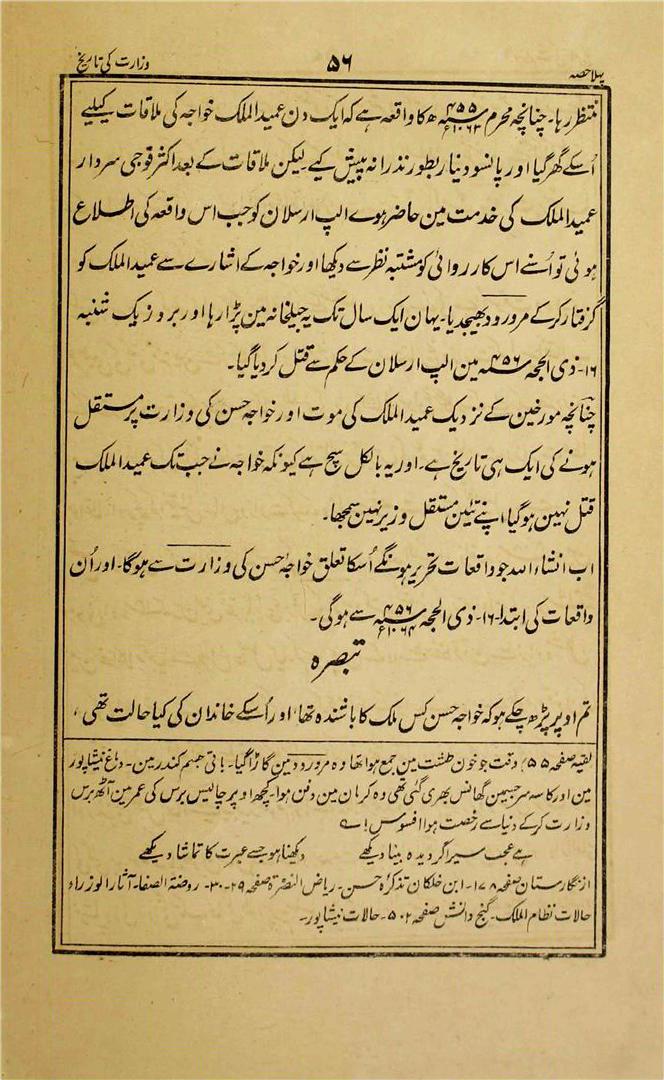 پہلا حصہ ۵۶ وزارت کی تاریخ
منتظر رہا۔ چنانچہ محرم ۴۵۵ ؁ھ ۱۰۶۳ ؁ء کا واقعہ ہے کہ ایک دن عمید الملک خواجہ کی ملاقات کیلیے
اُسکے گھر گیا اور پانسو دینار بطور نذرانہ پیش کیے۔ لیکن ملاقات کے بعد اکثر فوجی سردار
عمید الملک کی خدمت مین حاضر ہوے الپ ارسلان کو جب اس واقعہ کی اطلاع
ہوئی تو اُسنے اس کارروائی کو مشتبہ نظر سے دیکھا اور خواجہ کے اشارے سے عمید الملک کو
گرفتار کرکے مرورود بھیجدیا۔ یہان ایک سال تک یہ جیلخانہ مین پڑا رہا اور بروز یک شنبہ
۱۶۔ ذی الحجہ ۴۵۶ ؁ مین الپ ارسلان کے حکم سے قتل کر دیا گیا۔
چنانچہ مورخین کے نزدیک عمید الملک کی موت اور خواجہ حسن کی وزارت پر مستقل
ہونے کی ایک ہی تاریخ ہے۔ اور یہ بالکل سچ ہے کیونکہ خواجہ نے جب تک عمید الملک
قتل نہین ہو گیا اپنے تئین مستقل وزیر نہین سمجھا۔
اب انشاء اللہ جو واقعات تحریر ہونگے اُسکا تعلق خواجہ حسن کی وزارت سے ہوگا۔ اور اُن
واقعات کی ابتدا ۱۶۔ ذی الحجہ ۴۵۶ ؁ھ ۱۰۶۴ ؁ء سے ہوگی۔
تبصرہ
تم اوپر پڑھ چکے ہو کہ خواجہ حسن کس ملک کا باشندہ تھا، اور اُسکے خاندان کی کیا حالت تھی،
(بقیہ صفحہ ۵۵) وقت جو خون طشت مین جمع ہوا تھا وہ مرورود مین گاڑا گیا۔ باقی جسم کندر مین۔ دماغ نیشاپور
مین اور کاسہ سر جسمین گھانس بھری گئی تھی وہ کرمان مین دفن ہوا۔ کچھ اوپر چالیس برس کی عمر مین آٹھ برس
وزارت کرکے دنیا سے رخصت ہوا افسوس!
ہے عجب سیر اگر دیدہ بینا دیکھے دیکھنا ہو جسے عبرت کا تماشا دیکھے
از نگارستان صفحہ ۱۷۸۔ ابن خلکان تذکرہ حسن۔ ریاض النضرۃ صفحہ ۲۹۔ ۳۰۔ روضۃ الصفا۔ آثار الوزراء
حالات نظام الملک۔ گنج دانش صفحہ ۵۰۲۔ حالات نیشاپور۔